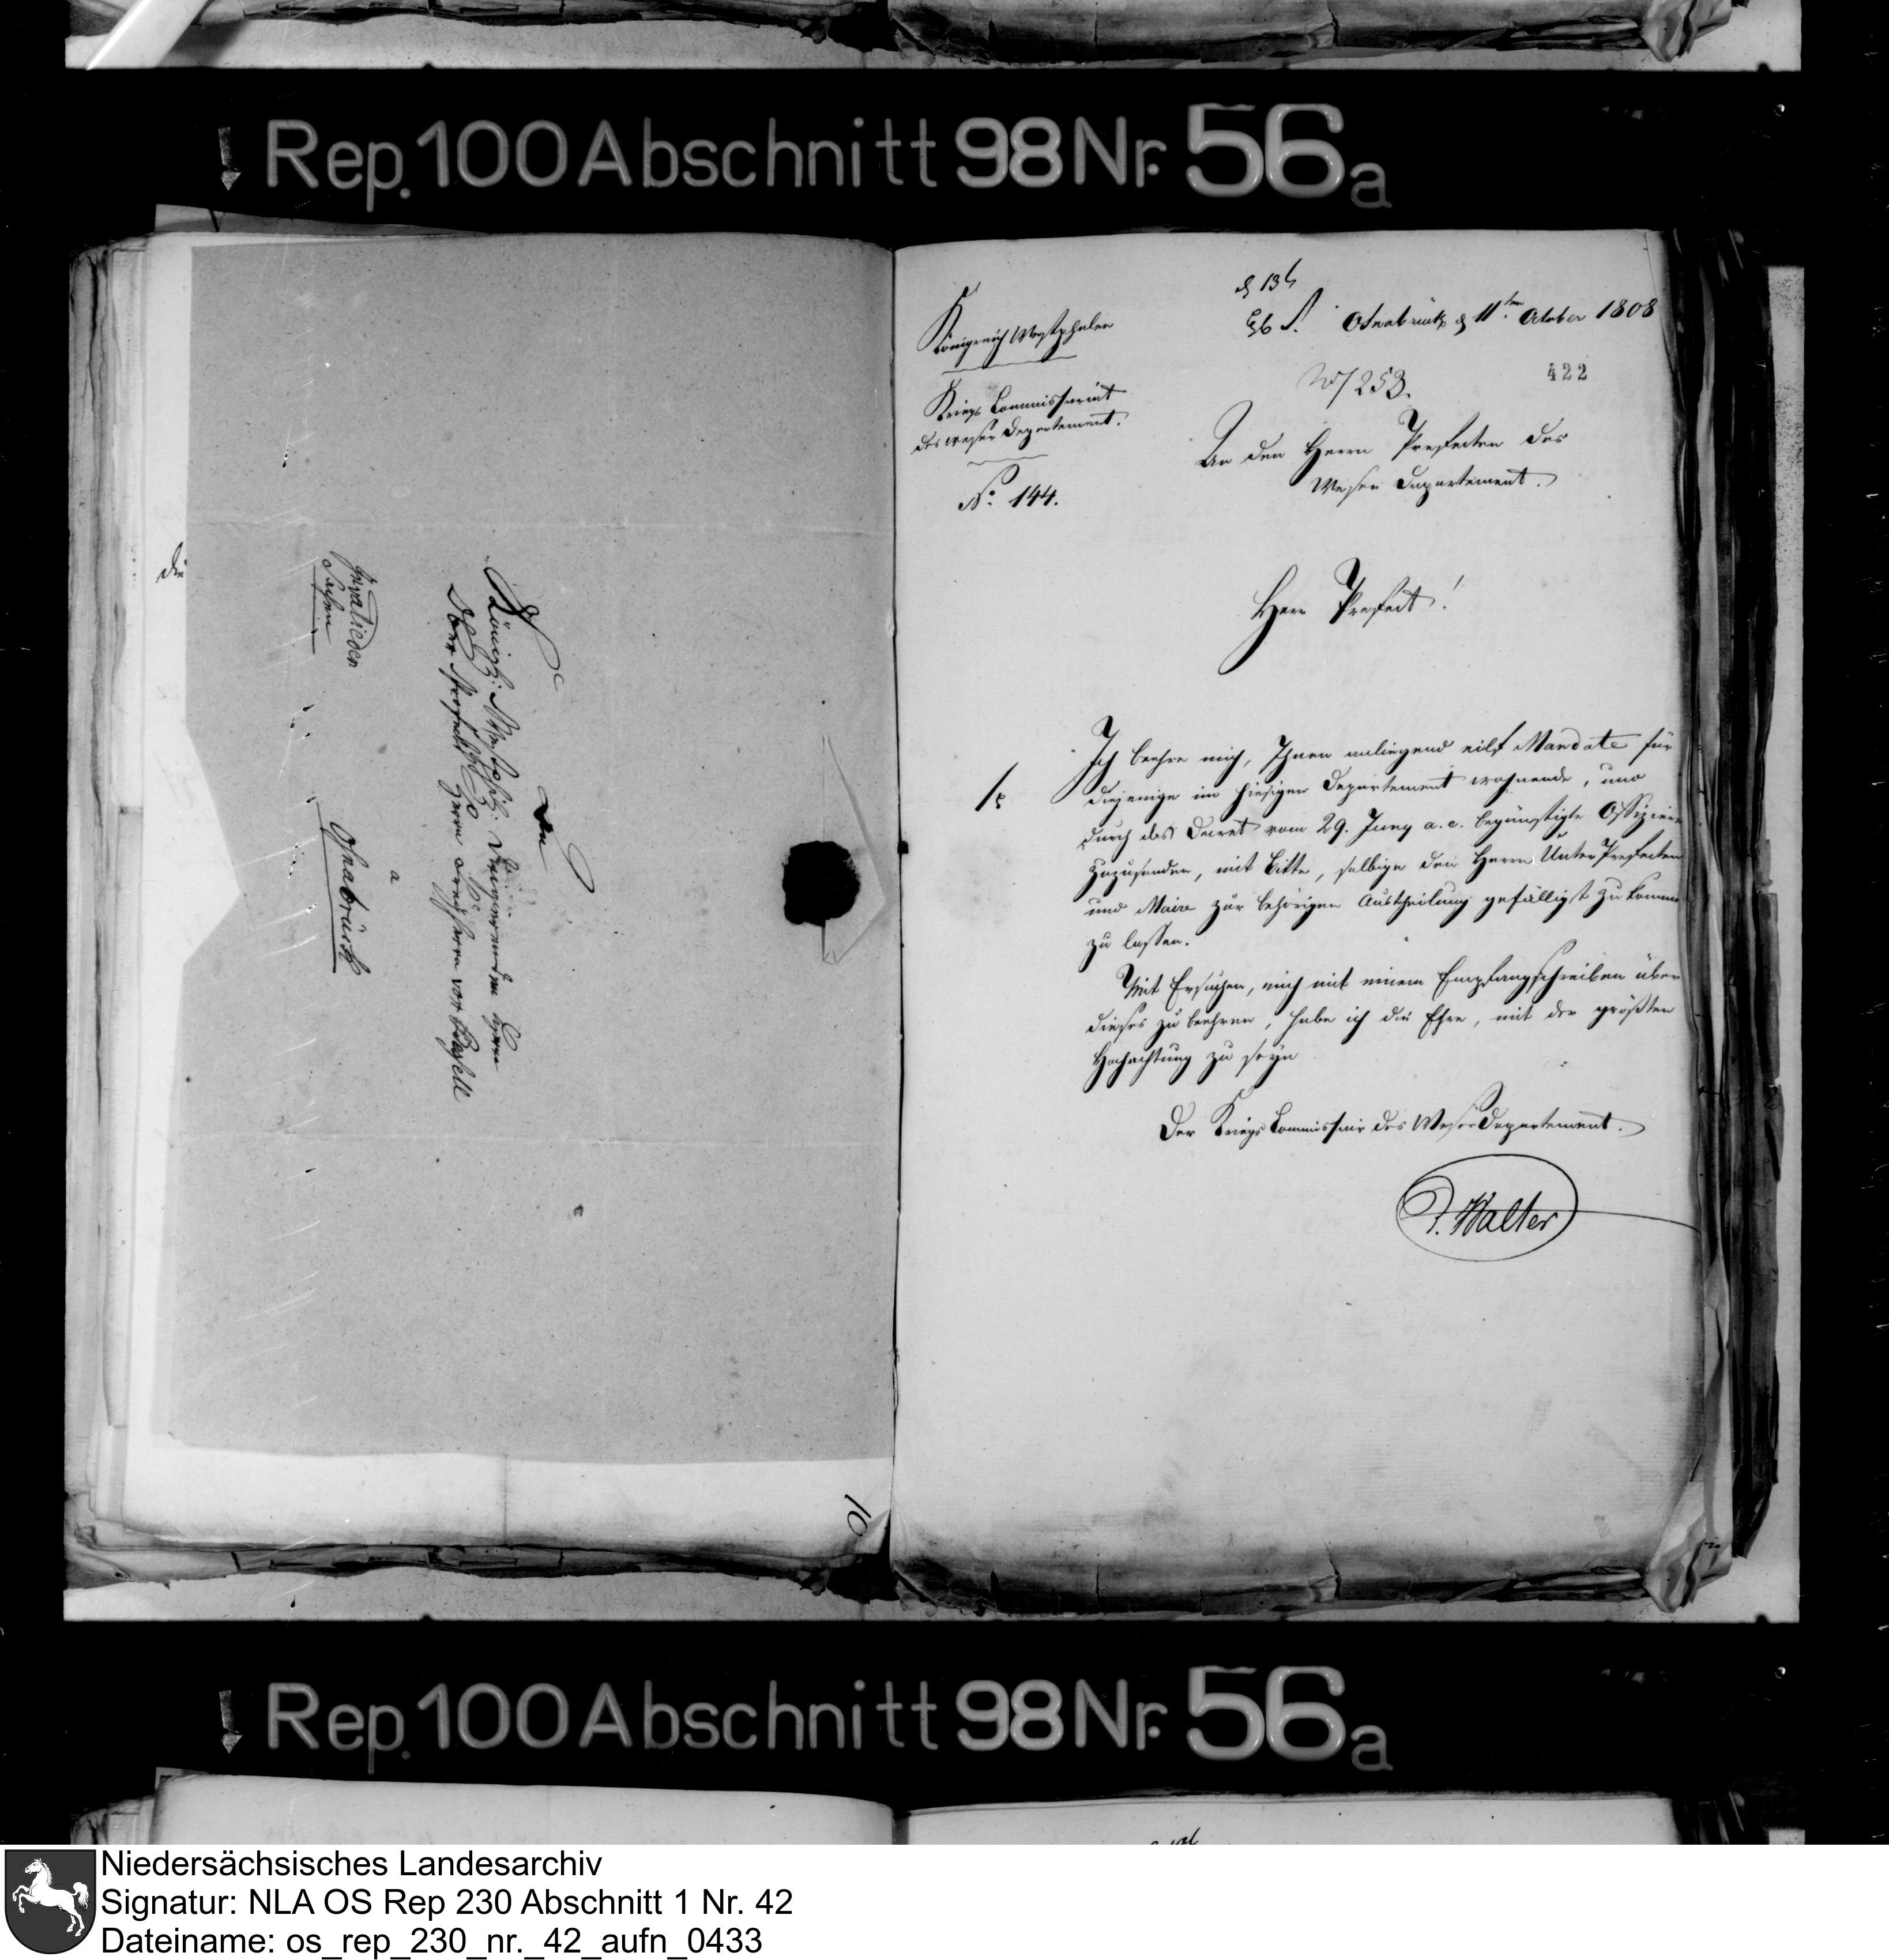 Rep. 100 Abschnitt 98 Nr. 56a
Die
An
Königl: Westphl:
Herrn
Osnabrück
a
Invaliden
Sachen
10
Königreich Westphalen
Kriegs Commissariat
des Weser Departement.
No. 144.
Osnabrück d 11ten October 1808
422
W/253.
An den Herrn Praefecten des
Weser Departement.
Herr Praefect!
Ich beehre mich, Ihnen anliegend eilf Mandate für
diejenige im hiesigen Departement wohnende, und
durch das Decret vom 29. Juny a. c. begünstigte Offiziere
zuzusenden, mit Bitte, selbige den Herrn UnterPraefecten
und Maire zur behörigen Austheilung gefälligst zukommen
zu lassen.
Mit Ersuchen, mich mit einem Empfangschreiben über
dieses zu beehren, habe ich die Ehre, mit der größten
Hochachtung zu seyn
Der Kriegs Commissair des Weser Departement.
P. Walter
Rep. 100 Abschnitt 98 Nr. 56a
Niedersächsisches Landesarchiv
Signatur: NLA OS Rep 230 Abschnitt 1 Nr. 42
Dateiname: os_rep_230_nr._42_aufn_0433